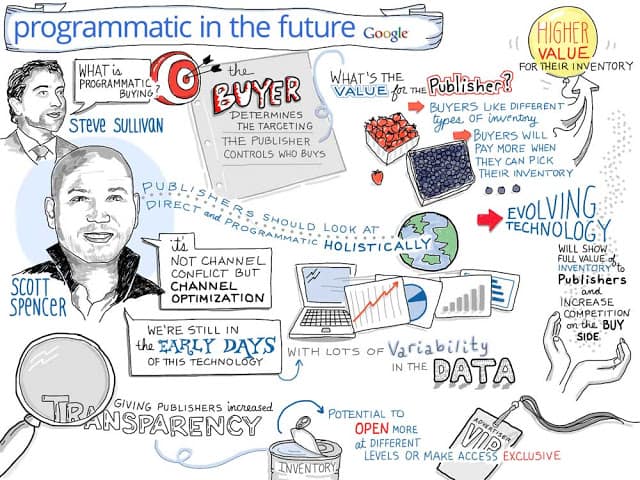 programmatic in the future Google
WHAT is
PROGRAMMATIC
BUYING?
STEVE SULLIVAN
the
BUYER
DETERMINES
THE TARGETING
THE PUBLISHER
CONTROLS WHO BUYS
WHAT'S THE
VALUE for the Publisher?
BUYERS LIKE DIFFERENT
types of inventory
BUYERS WILL
PAY MORE WHEN
THEY CAN PICK
THEIR INVENTORY
HIGHER
VALUE
FOR THEIR INVENTORY
PUBLISHERS SHOULD LOOK AT
DIRECT and PROGRAMMATIC HOLISTICALLY
EVOLVING
TECHNOLOGY
WILL SHOW
FULL VALUE of
INVENTORY to
Publishers
and
INCREASE
COMPETITION
on the BUY
SIDE
SCOTT
SPENCER
it's
NOT CHANNEL
CONFLICT BUT
CHANNEL
OPTIMIZATION
WE'RE STILL IN
the EARLY DAYS
OF THIS TECHNOLOGY
WITH LOTS OF Variability
IN THE DATA
GIVING PUBLISHERS increased
TRANSPARENCY
INVENTORY
POTENTIAL TO
OPEN MORE
at DIFFERENT
LEVELS OR MAKE ACCESS EXCLUSIVE
ADVERTISER
VIP